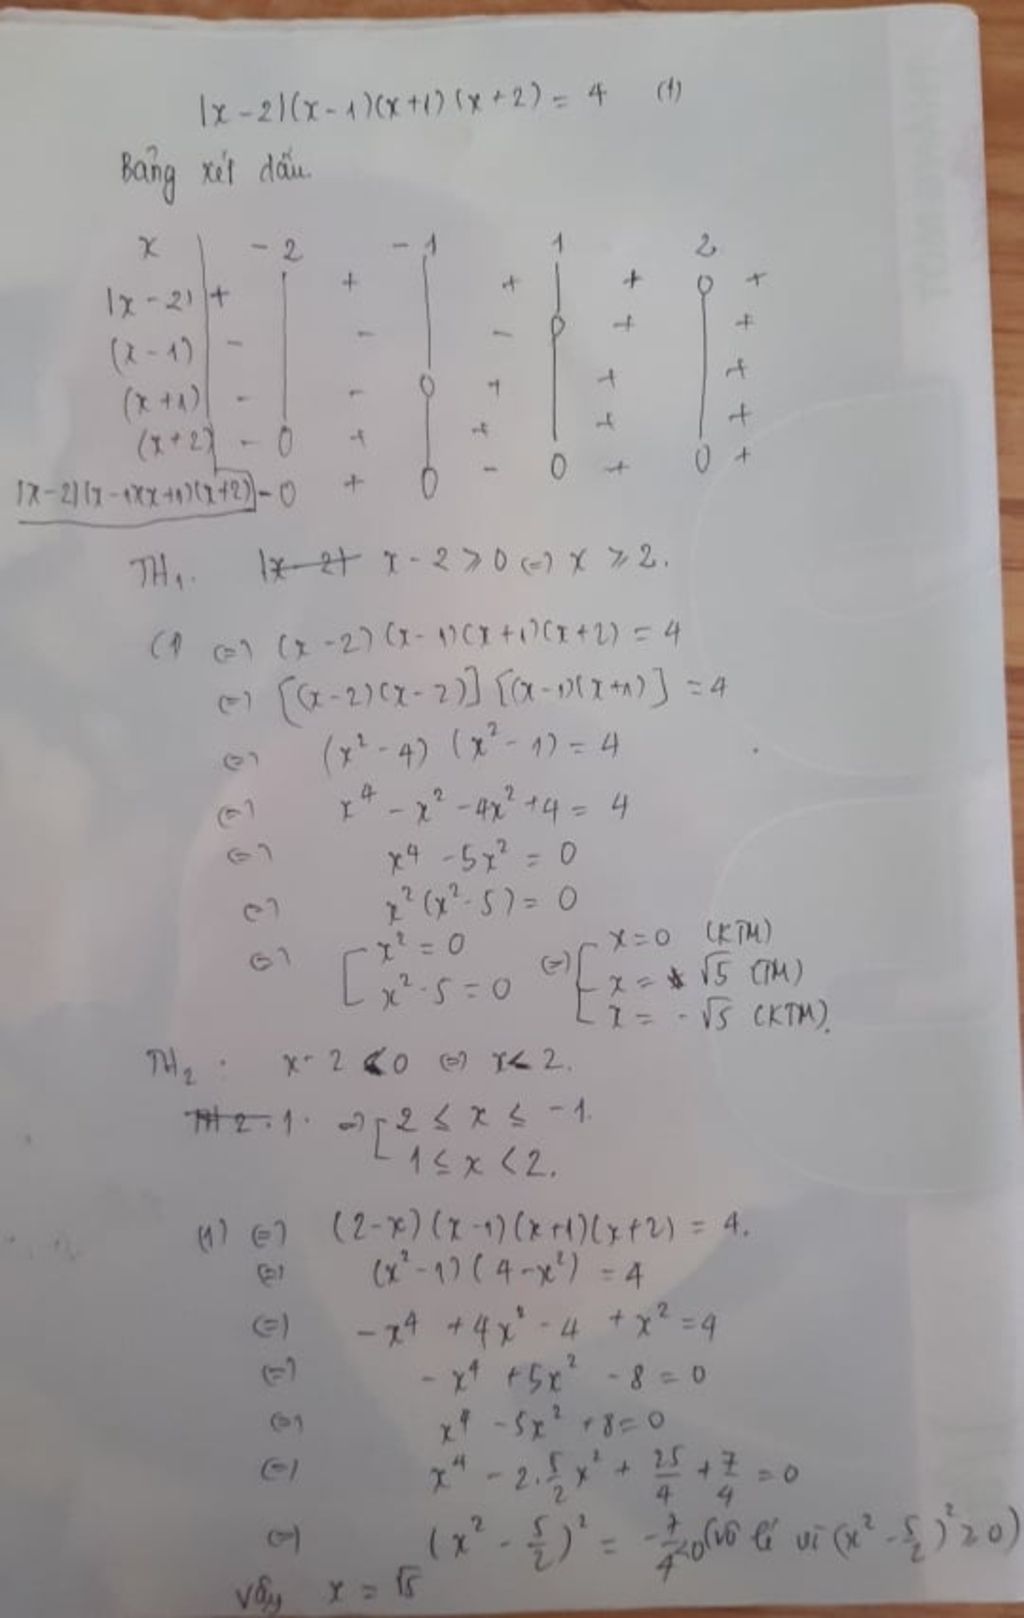 |x-2|(x-1)(x+1)(x+2) = 4 (1)
Bảng xét dấu.
x -2 -1 1 2
|x-2| + + + + 0 +
(x-1) - - - 0 + +
(x+1) - - 0 + + +
(x+2) - 0 + + + +
|x-2|(x-1)(x+1)(x+2) - 0 + 0 - 0 + 0 +
TH₁. |x-2| x-2 ≥ 0 (=) x ≥ 2.
(1 (=) (x-2)(x-1)(x+1)(x+2) = 4
(=) [(x-2)(x-2)][(x-1)(x+1)] = 4
(=) (x²-4)(x²-1) = 4
(=) x⁴ - x² - 4x² + 4 = 4
(=) x⁴ - 5x² = 0
(=) x²(x²-5) = 0
(=) [ x² = 0 (=) [ x = 0 (KTM)
x² - 5 = 0 x = √5 (TM)
x = -√5 (KTM).
TH₂: x-2 < 0 (=) x < 2.
TH2.1. =) [ 2 ≤ x ≤ -1.
1 ≤ x < 2.
(1) (=) (2-x)(x-1)(x+1)(x+2) = 4.
(=) (x²-1)(4-x²) = 4
(=) -x⁴ + 4x² - 4 + x² = 4
(=) -x⁴ + 5x² - 8 = 0
(=) x⁴ - 5x² + 8 = 0
(=) x⁴ - 2.5/2 x² + 25/4 + 7/4 = 0
(=) (x² - 5/2)² = -7/4 < 0 (vô lí vì (x² - 5/2)² ≥ 0)
Vậy x = √5